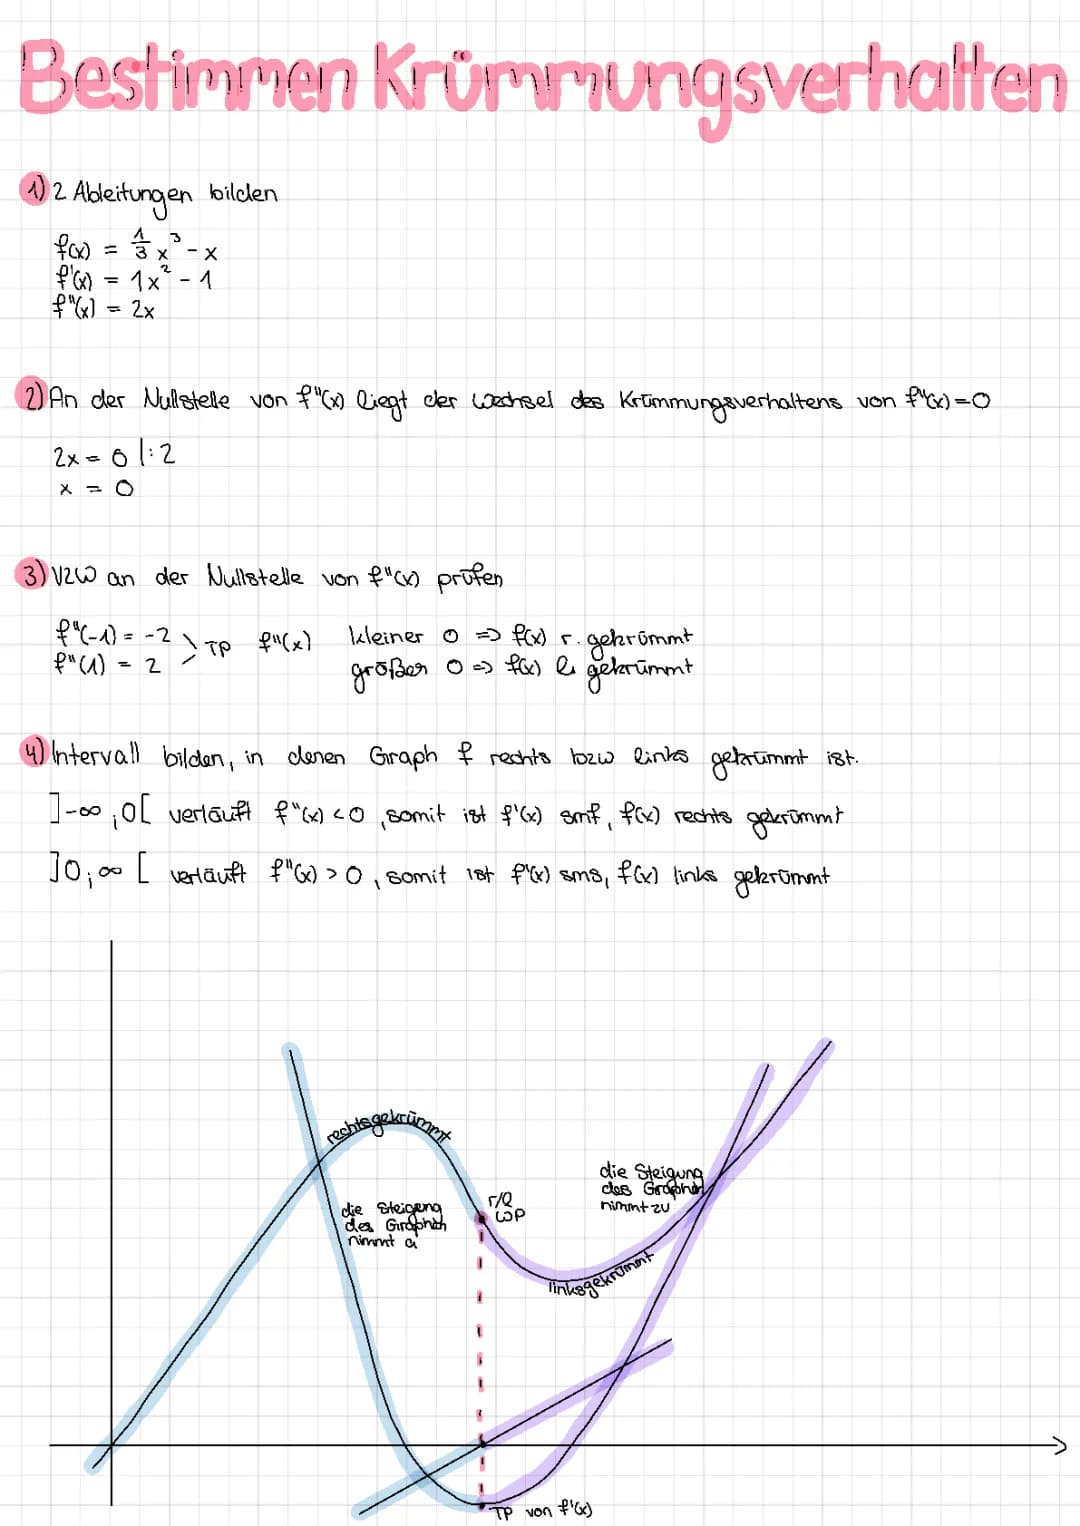 Bestimmen Krümmungsverhalten
1) 2 Ableitungen bilden
f(x) = 1/3 x³ - x
f'(x) = 1x² - 1
f"(x) = 2x
2) An der Nullstelle von f"(x) liegt der Wechsel des Krümmungsverhaltens von f"(x)=0
2x = 0 |:2
x = 0
3) VZW an der Nullstelle von f"(x) prüfen
f"(-1) = -2 > TP f"(x) kleiner 0 => f(x) r. gekrümmt
f"(1) = 2 größer 0 => f(x) li gekrümmt
4) Intervall bilden, in denen Graph f rechts bzw links gekrümmt ist.
]-∞;0[ verläuft f"(x) < 0, somit ist f'(x) smf, f(x) rechts gekrümmt
]0;∞[ verläuft f"(x) > 0, somit ist f'(x) sms, f(x) links gekrümmt
rechtsgekrümmt
die Steigung
des Graphen
nimmt a
r/l
WP
die Steigung
des Graphen
nimmt zu
linksgekrümmt
TP von f'(x)